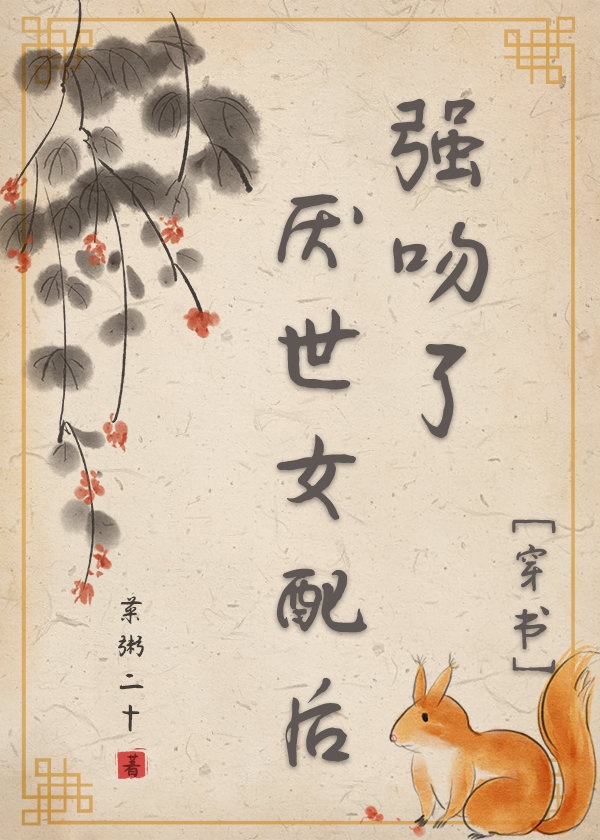 强吻了
厌世女配后
［穿书］
菜粥二十
著